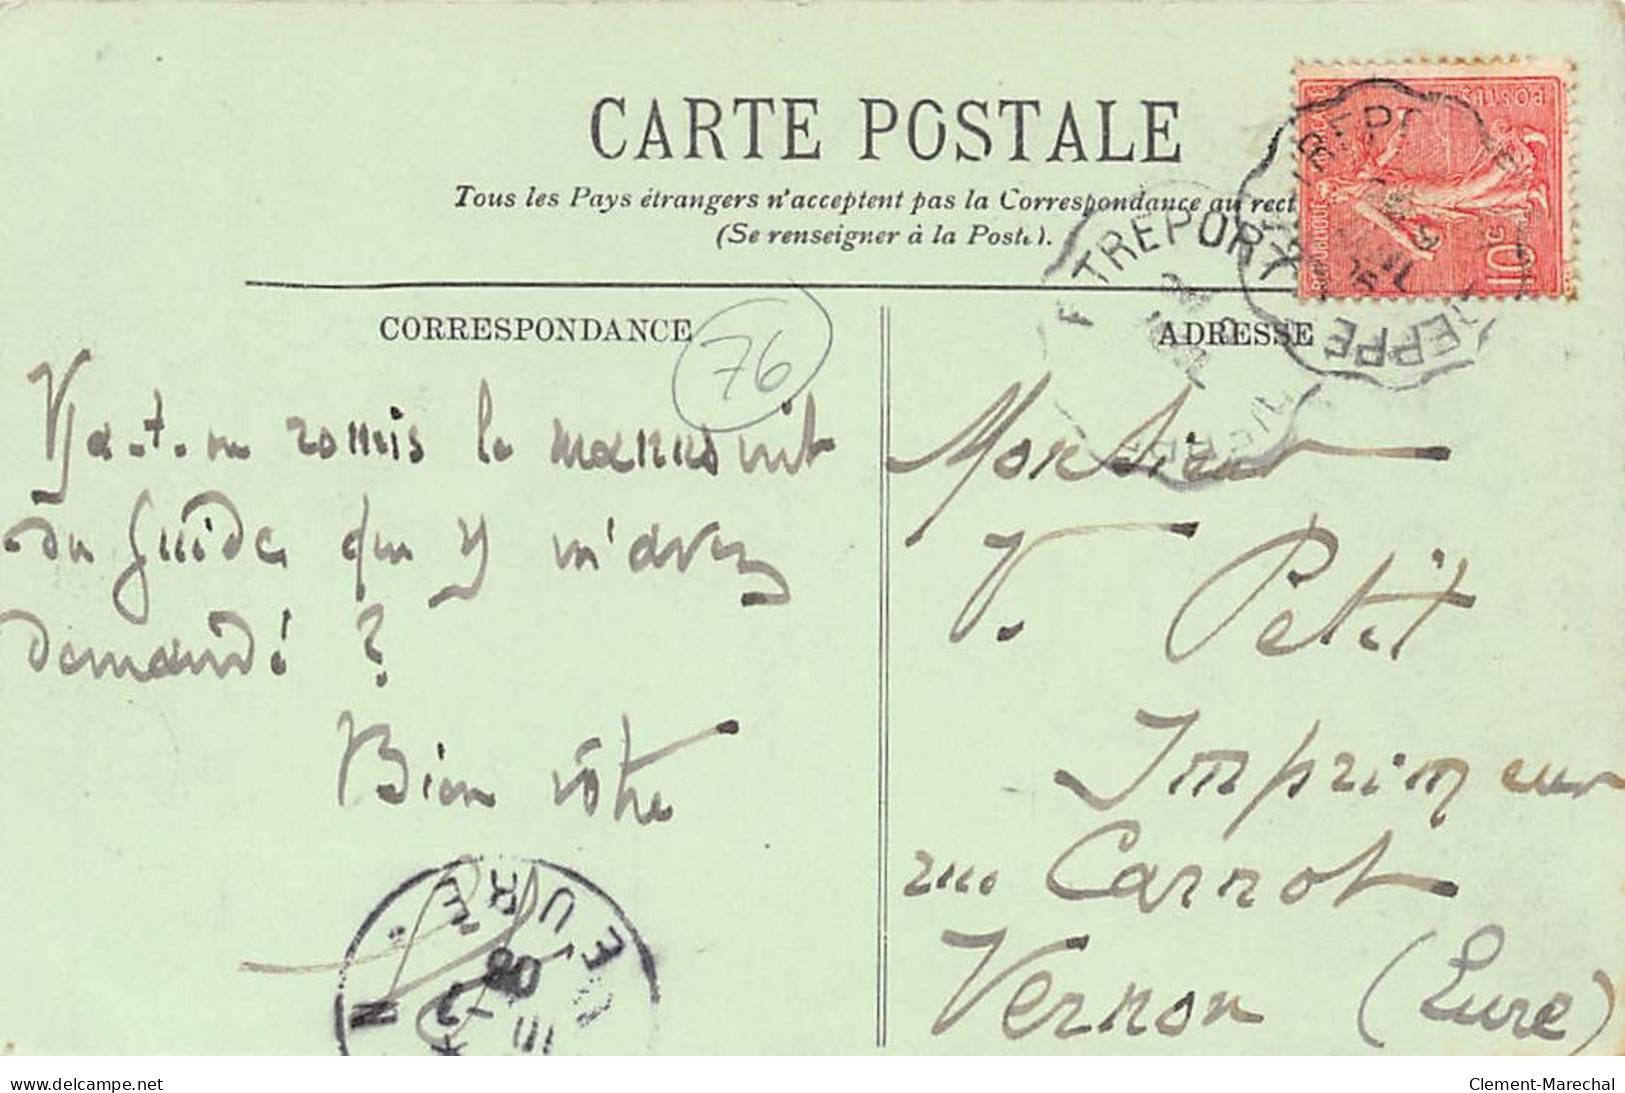 CARTE POSTALE
Tous les Pays étrangers n'acceptent pas la Correspondance au rect
(Se renseigner à la Poste).
CORRESPONDANCE
ADRESSE
76
REPUBLIQUE FRANCAISE
POSTES
10c
TREPORT
DIEPPE
Y a-t-on remis le manuscrit
du Guide que y m'avez
demandé ?
Bien vôtre
Monsieur
V. Petit
Imprimeur
rue Carnot
Vernon (Eure)
EURE
08
www.delcampe.net
Clement-Marechal